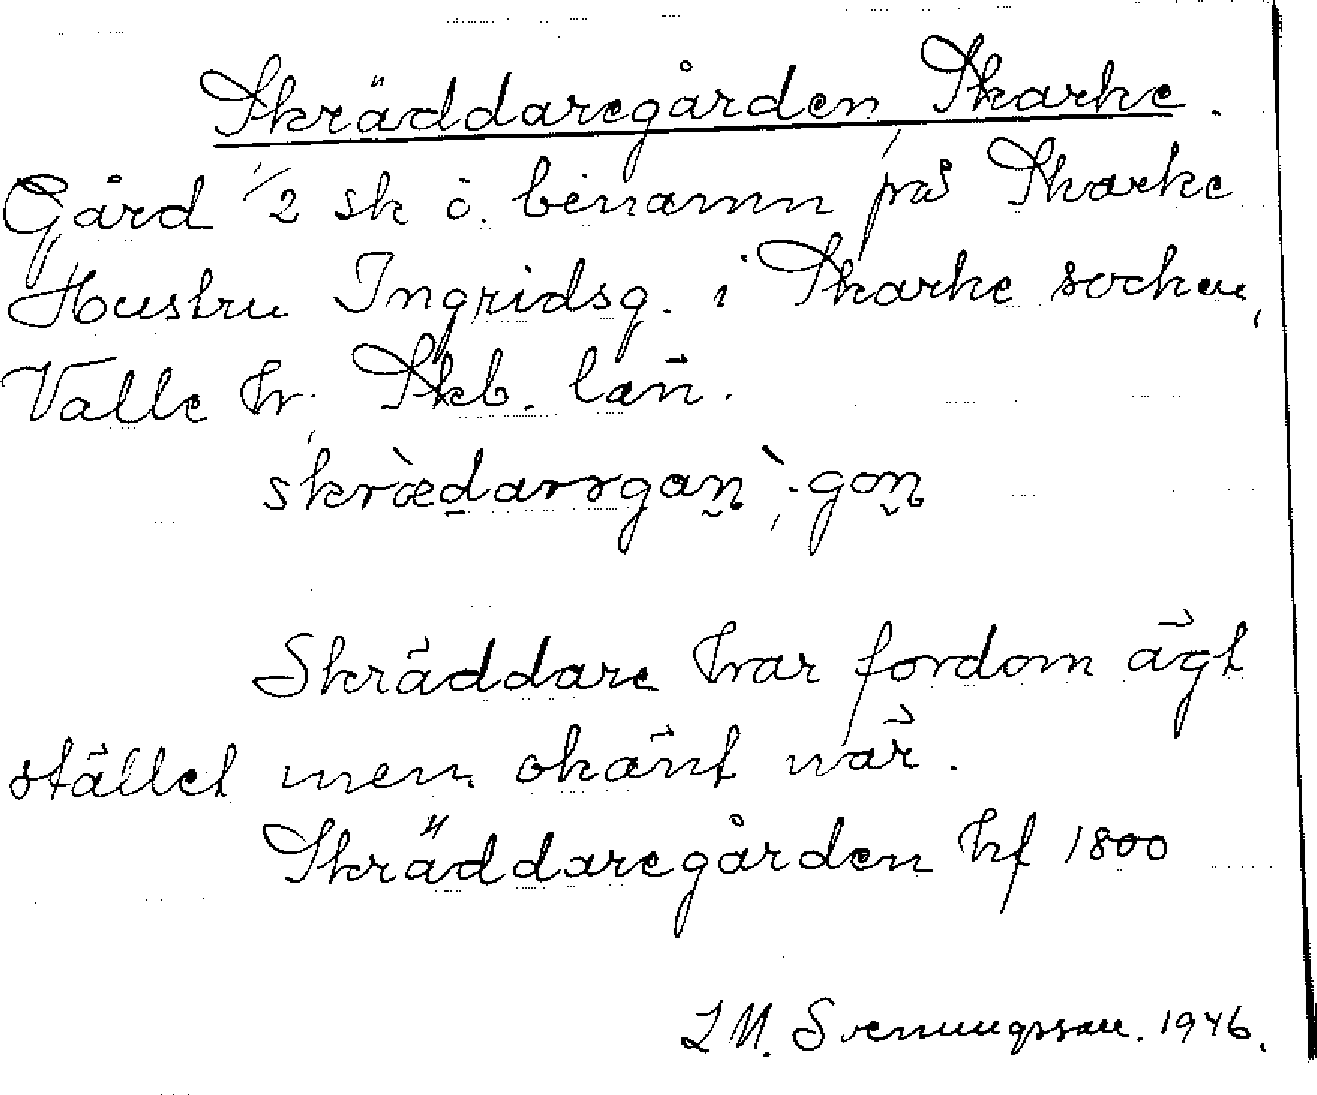 Skräddaregården, Skarke.
Gård 1/2 sk ö. binamn på Skarke
Hustru Ingridsg. i Skarke socken,
Valle hr. Skb. län.
skrædarrgan; -gon
Skräddare har fordom ägt
stället men okänt när.
Skräddaregården hf 1800
L M. Svenungsson. 1946.